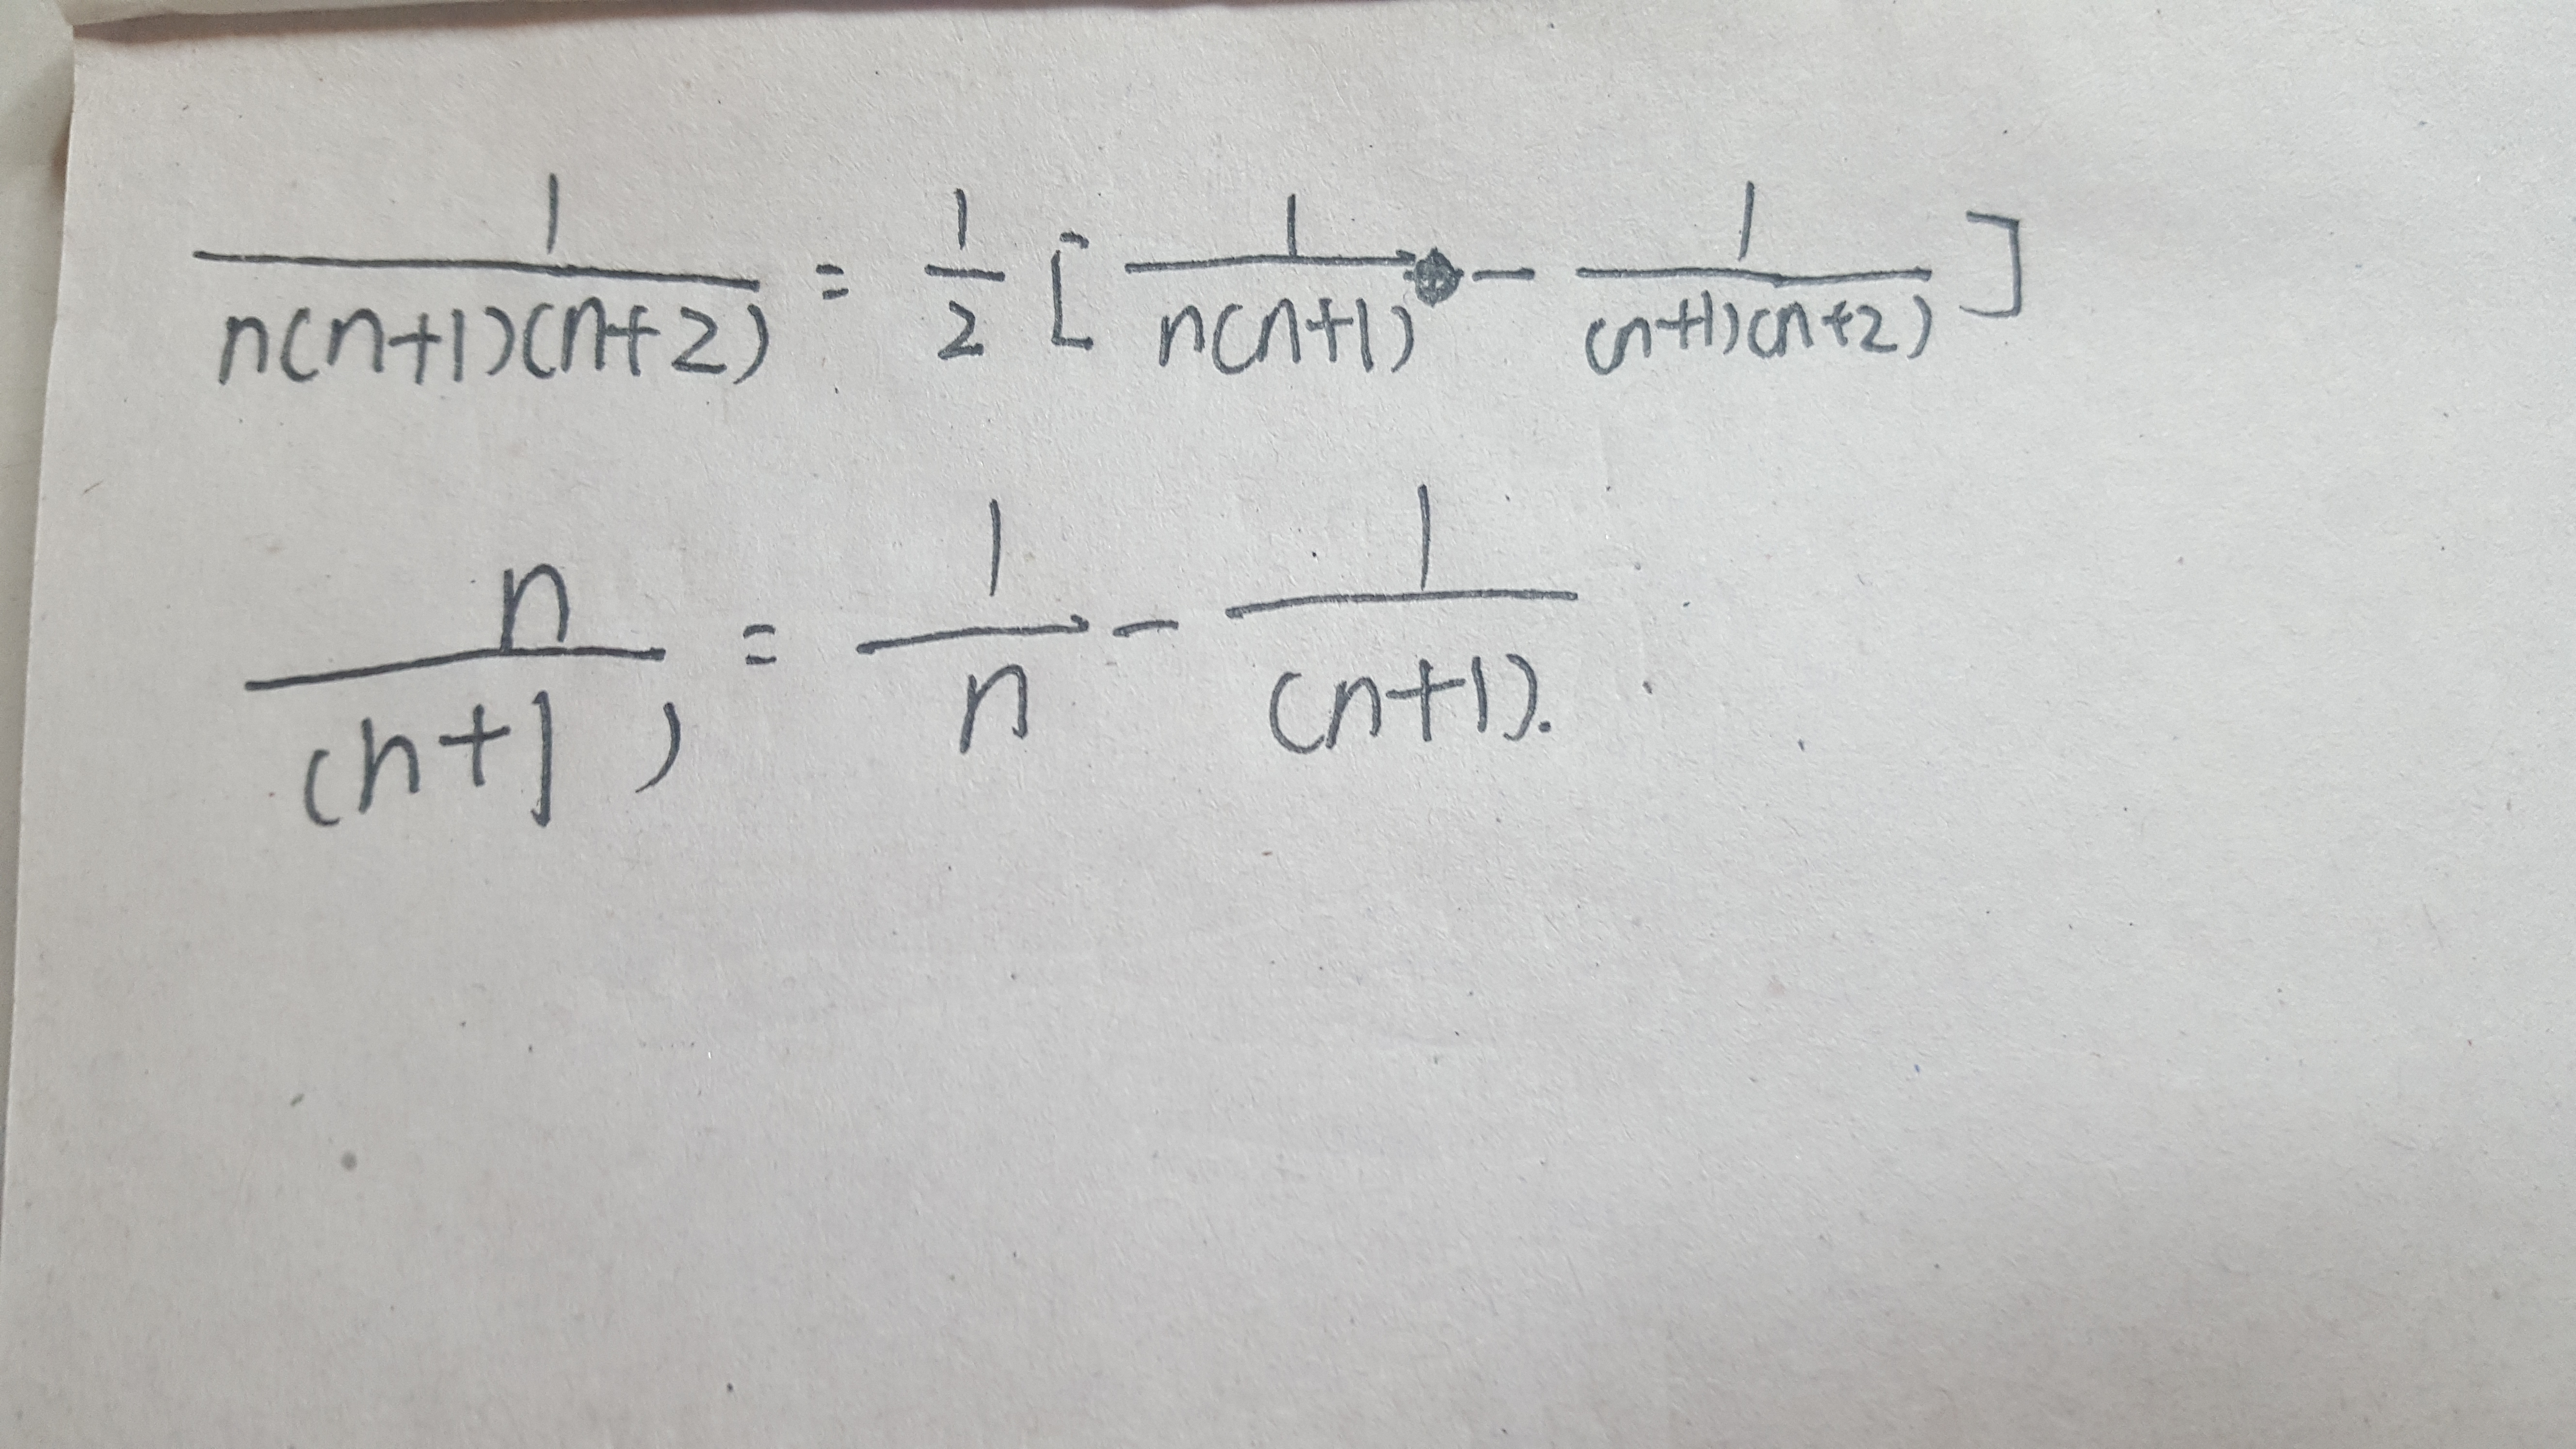 1/(n(n+1)(n+2)) = 1/2 [1/(n(n+1)) - 1/((n+1)(n+2))]
n/(n+1) = 1/n - 1/(n+1).